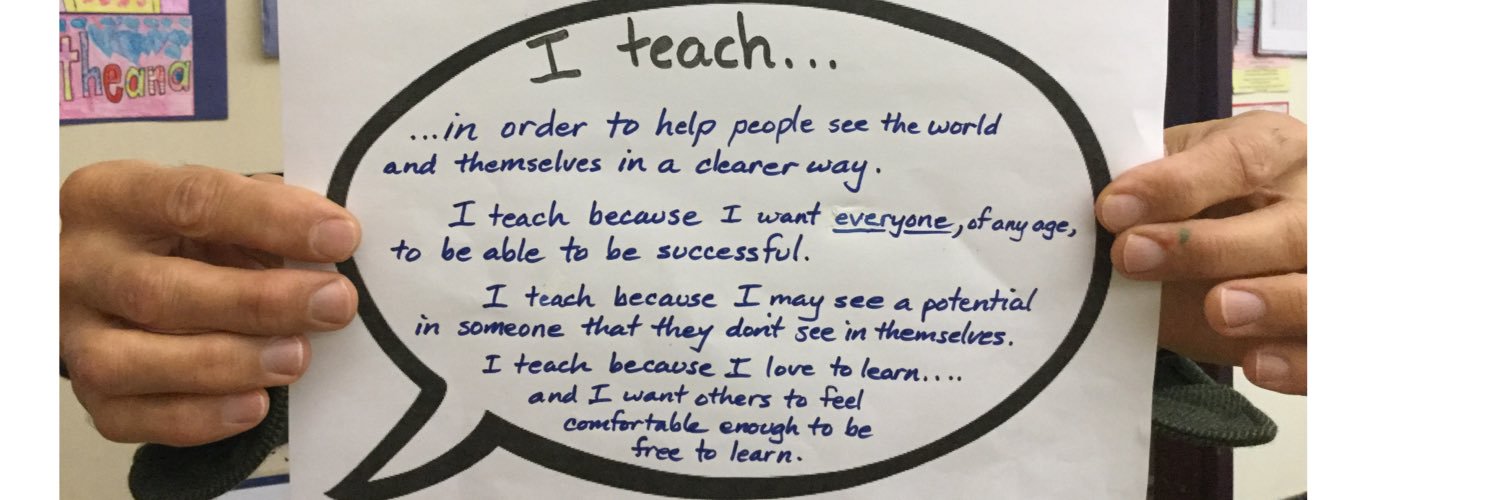 theana
I teach...
...in order to help people see the world
and themselves in a clearer way.
I teach because I want everyone, of any age,
to be able to be successful.
I teach because I may see a potential
in someone that they don't see in themselves.
I teach because I love to learn....
and I want others to feel
comfortable enough to be
free to learn.